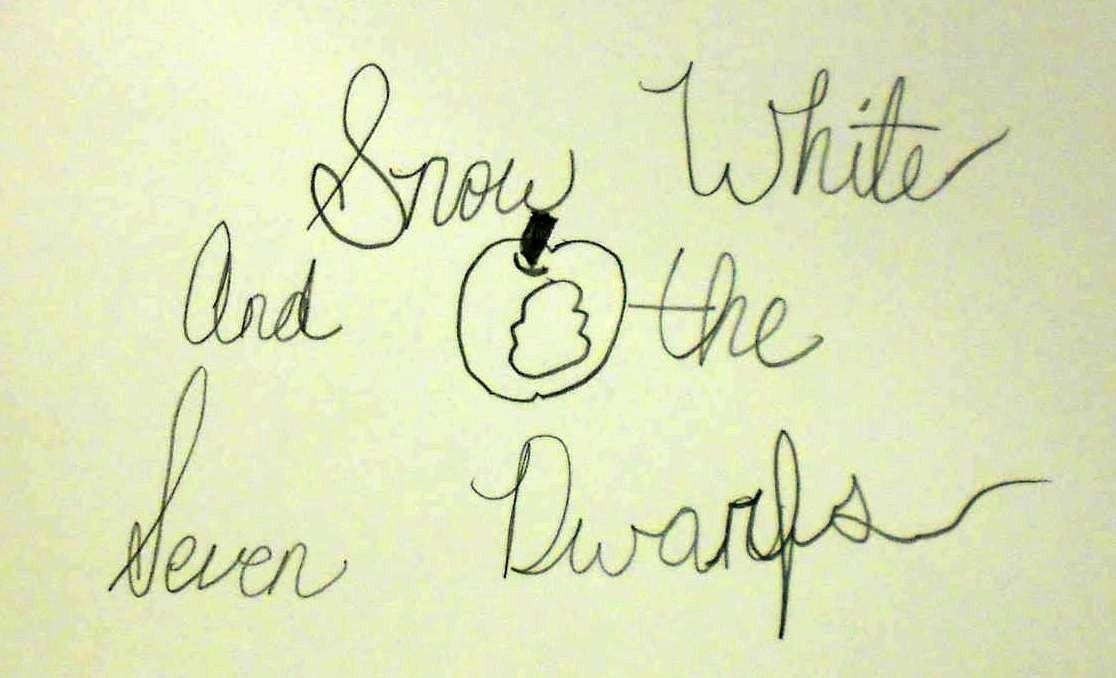 Snow White
And the
Seven Dwarfs